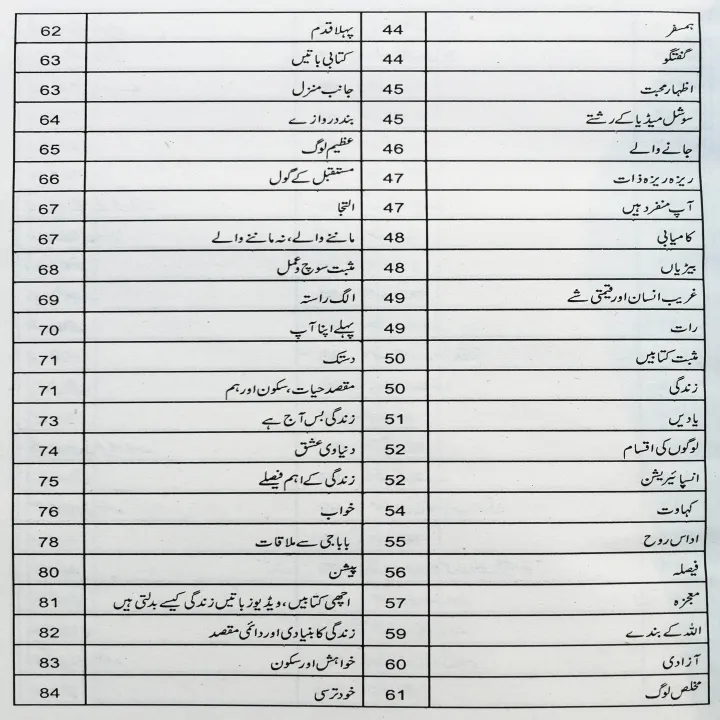 ہمسفر 44 پہلا قدم 62
گفتگو 44 کتابی باتیں 63
اظہار محبت 45 جانب منزل 63
سوشل میڈیا کے رشتے 45 بند دروازے 64
جانے والے 46 عظیم لوگ 65
ریزہ ریزہ ذات 47 مستقبل کے گول 66
آپ منفرد ہیں 47 التجا 67
کامیابی 48 ماننے والے، نہ ماننے والے 67
بیڑیاں 48 مثبت سوچ و عمل 68
غریب انسان اور قیمتی شے 49 الگ راستہ 69
رات 49 پہلے اپنا آپ 70
مثبت کتابیں 50 دستک 71
زندگی 50 مقصد حیات، سکون اور ہم 71
یادیں 51 زندگی بس آج ہے 73
لوگوں کی اقسام 52 دنیاوی عشق 74
انسپائیریشن 52 زندگی کے اہم فیصلے 75
کہاوت 54 خواب 76
اداس روح 55 بابا جی سے ملاقات 78
فیصلہ 56 پیشن 80
معجزہ 57 اچھی کتابیں، ویڈیوز باتیں زندگی کیسے بدلتی ہیں 81
اللہ کے بندے 59 زندگی کا بنیادی اور دائمی مقصد 82
آزادی 60 خواہش اور سکون 83
مخلص لوگ 61 خود ترسی 84